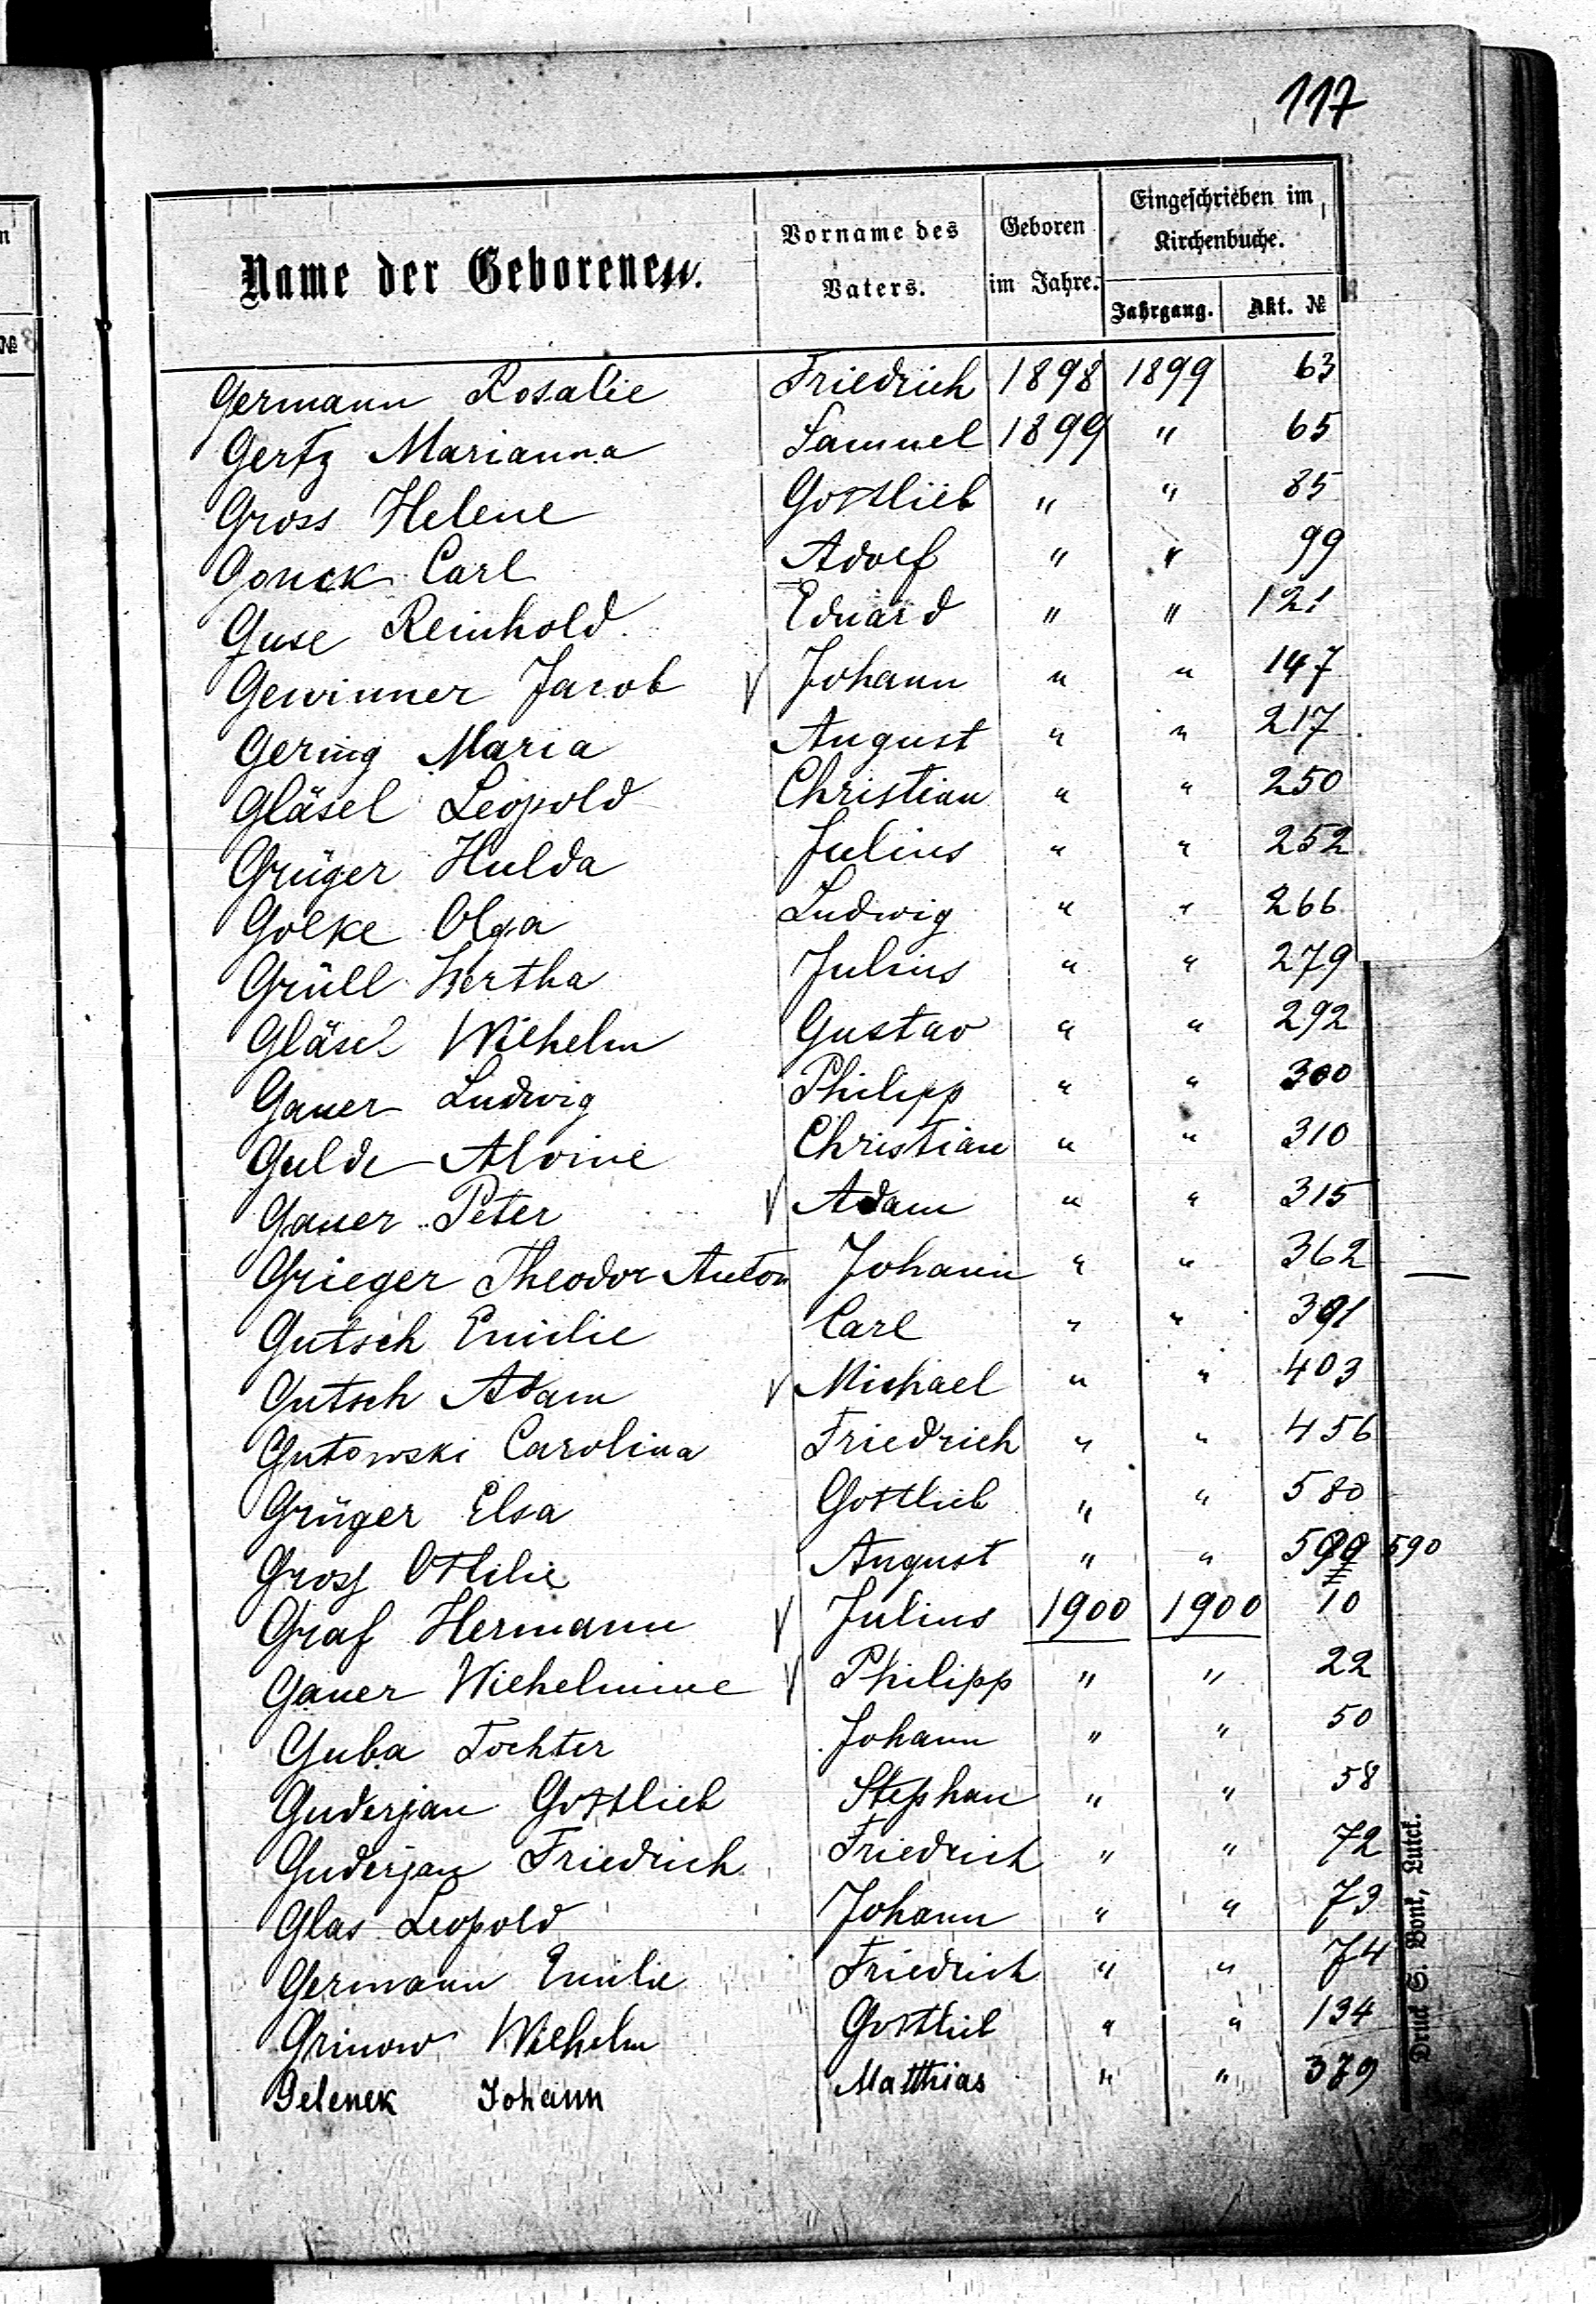 117
Name der Geborenen.
Vorname des Vaters.
Geboren im Jahre.
Eingeschrieben im Kirchenbuche.
Jahrgang.
Akt. №
Germann Rosalie Friedrich 1898 1899 63
Gertz Marianna Samuel 1899 " 65
Gross Helene Gottlieb " " 85
Gonck Carl Adolf " " 99
Guse Reinhold Eduard " " 121
Gewinner Jacob √ Johann " " 147
Gering Maria August " " 217
Gläsel Leopold Christian " " 250
Grüger Hulda Julius " " 252
Golke Olga Ludwig " " 266
Grüll Bertha Julius " " 279
Gläsel Wilhelm Gustav " " 292
Gauer Ludwig Philipp " " 300
Gulde Alvine Christian " " 310
Gauer Peter √ Adam " " 315
Grieger Theodor Anton Johann " " 362 —
Gutsch Emilie Carl " " 391
Gutsch Adam √ Michael " " 403
Gutowski Carolina Friedrich " " 456
Grüger Elsa Gottlieb " " 580
Gross Ottilie August " " 590
Graf Hermann √ Julius 1900 1900 10
Gauer Wilhelmine √ Philipp " " 22
Guba Tochter Johann " " 50
Guderjan Gottlieb Stephan " " 58
Guderjan Friedrich Friedrich " " 72
Glas Leopold Johann " " 73
Germann Emilie Friedrich " " 74
Grinow Wilhelm Gottlieb " " 134
Gelenek Johann Matthias " " 379
Druck S. Bonk, Lutck.
№